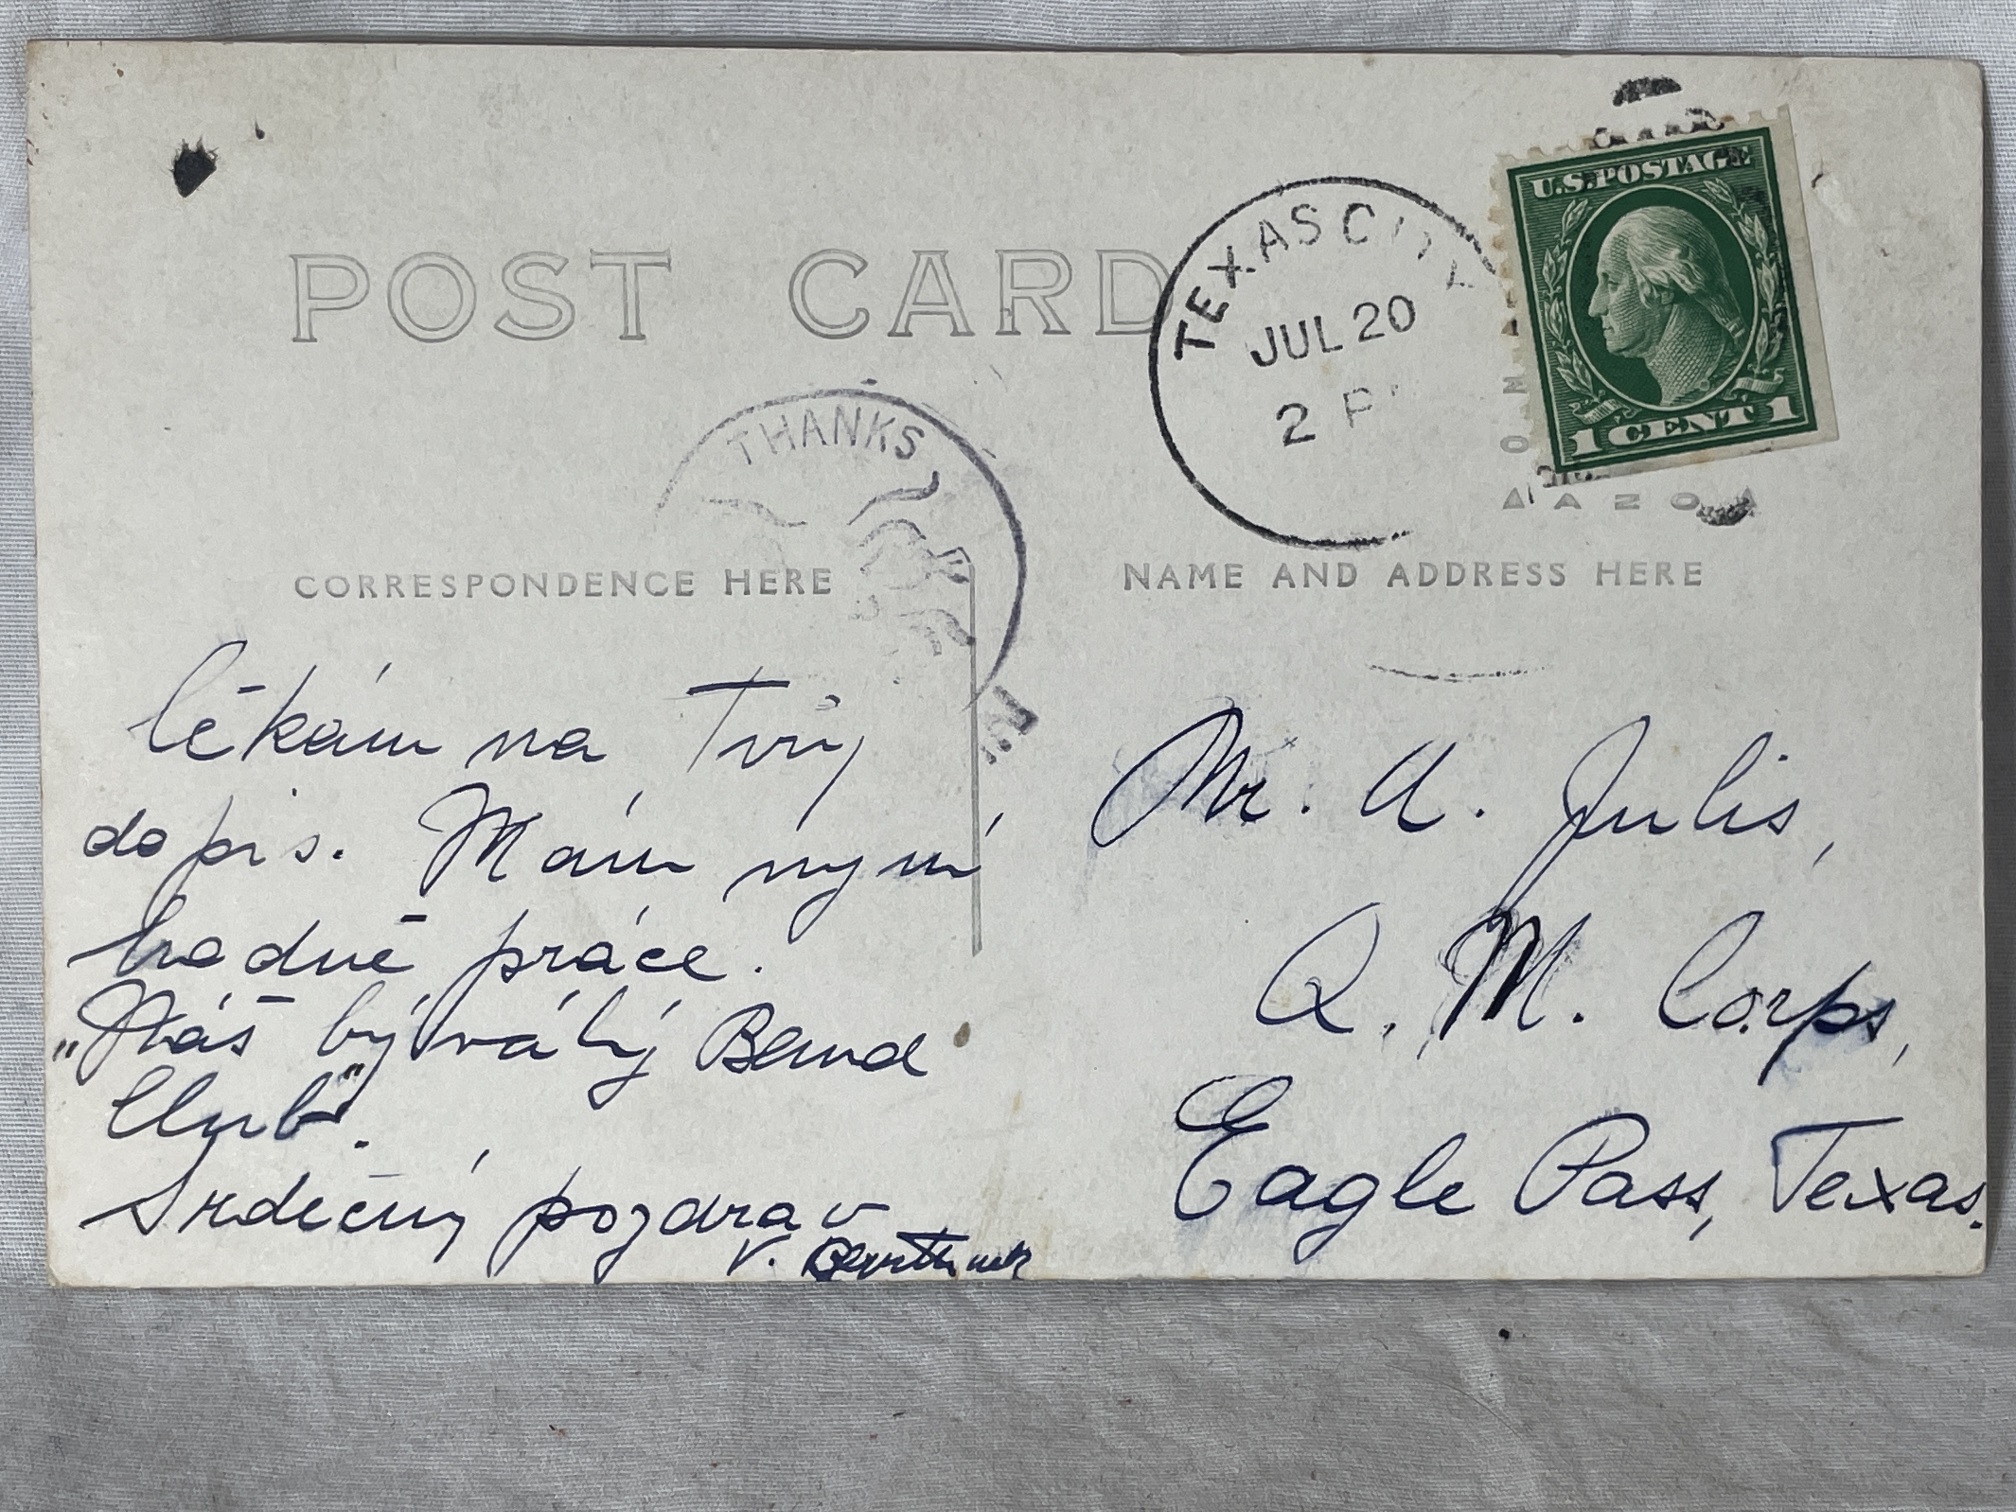 POST CARD
TEXAS CITY
JUL 20
2 P
U.S. POSTAGE
1 CENT 1
THANKS
CORRESPONDENCE HERE
NAME AND ADDRESS HERE
čekám na Tvůj
dopis. Mám nyní
hodně práce.
„Náš bývalý Band
Club".
Srdečný pozdrav
V.
Mr. A. Julis,
Q. M. Corps,
Eagle Pass, Texas.